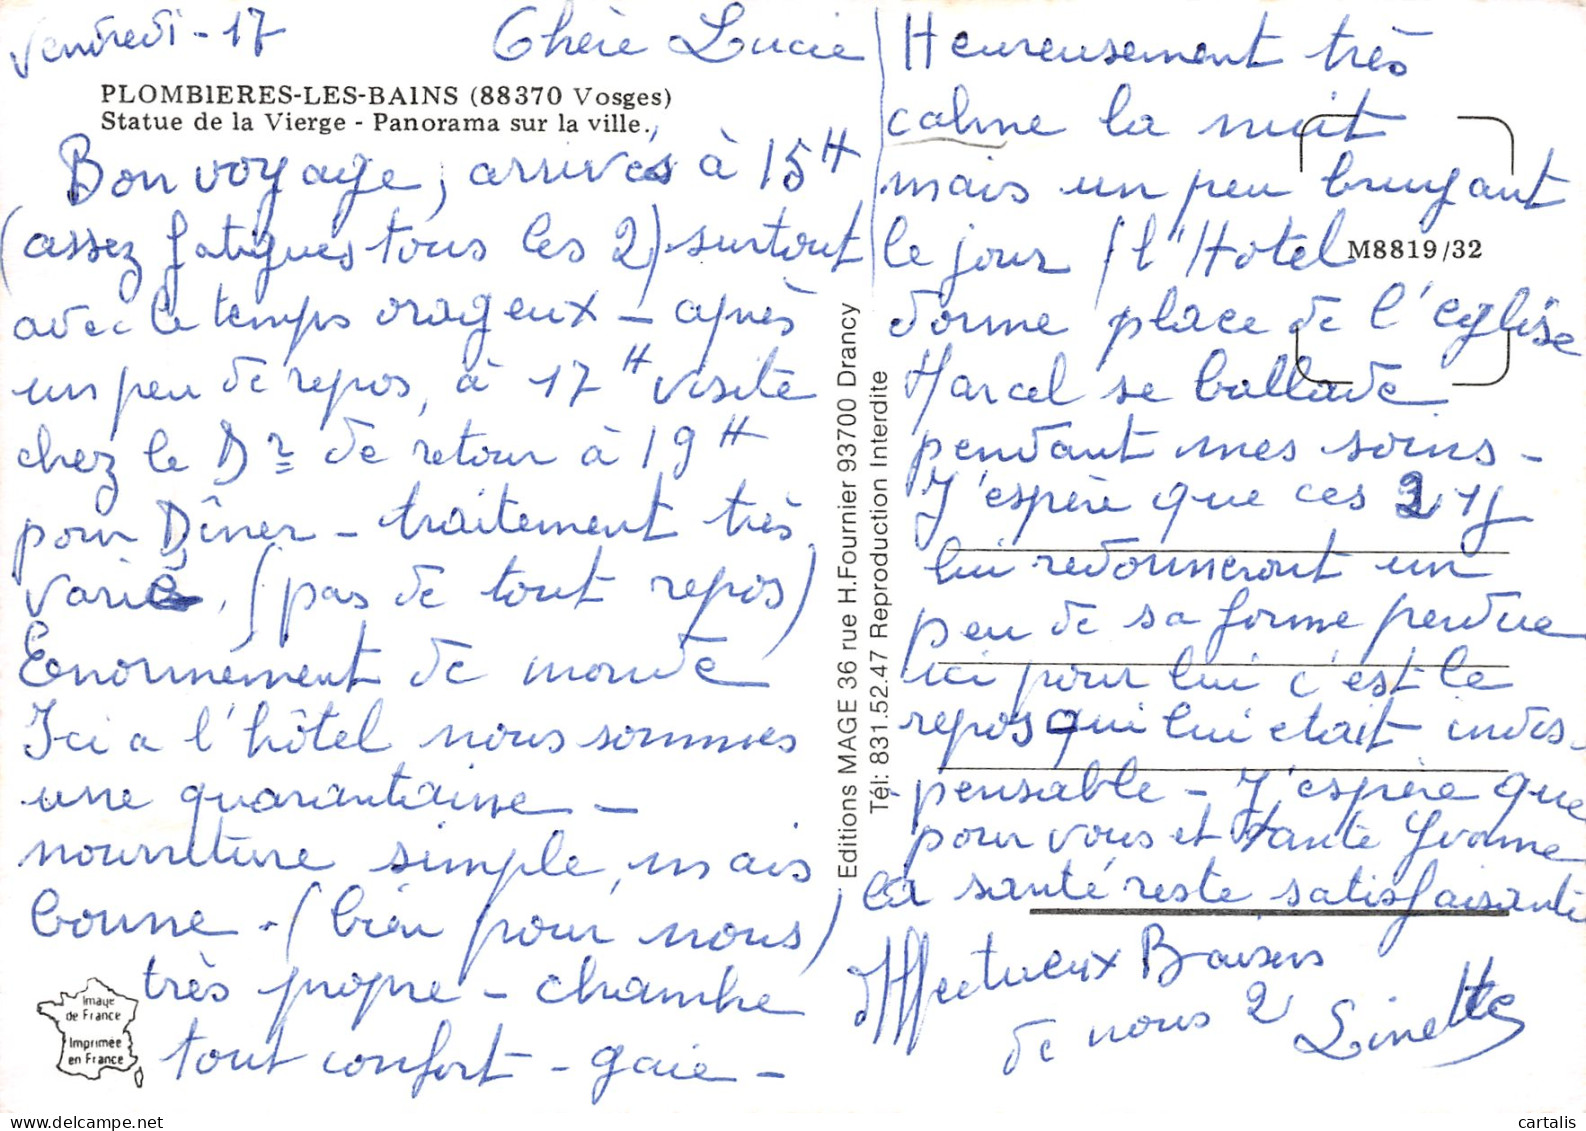 Vendredi - 17
Chère Lucie
PLOMBIERES-LES-BAINS (88370 Vosges)
Statue de la Vierge - Panorama sur la ville.
Bon voyage, arrivés à 15H
(assez fatigués tous les 2) surtout
avec le temps orageux - après
un peu de repos, à 17H visite
chez le Dr de retour à 19H
pour Dîner - traitement très
varié, (pas de tout repos)
Enormément de monde
Ici a l'hôtel nous sommes
une quarantaine -
nourriture simple, mais
bonne - (bien pour nous)
très propre - chambre
tout confort - gaie -
Image
de France
Imprimée
en France
Editions MAGE 36 rue H.Fournier 93700 Drancy
Tél: 831.52.47 Reproduction Interdite
Heureusement très
calme la nuit
mais un peu bruyant
le jour (l'Hotel
M8819/32
donne place de l'eglise
Marcel se ballade
pendant mes soins -
J'espère que ces 21 J
lui redonneront un
peu de sa forme perdue
ici pour lui c'est le
repos qui lui etait indis-
pensable - J'espère que
pour vous et tante Yvonne
la santé reste satisfaisante
Affectueux Baisers
de nous 2 Linette
cartalis